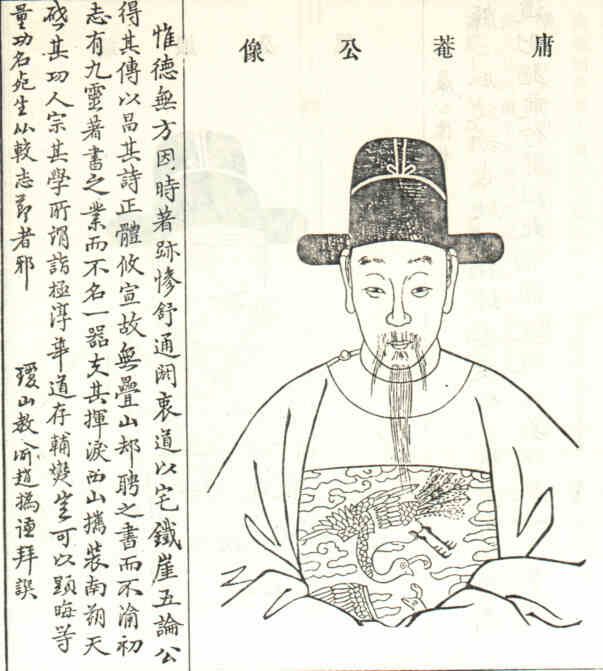 庸菴公像
惟德無方因時著跡慘舒通闢衷道以宅鐵崖五論公
得其傳以昌其詩正體攸宣故無疊山却聘之書而不渝初
志有九靈著書之業而不名一器其揮淚西山攜裝南朔天
啓其功人宗其學所謂詣極淳華道存輔變豈可以顯晦等
量功名死生以較志節者邪
瓊山教諭趙撝謙拜譔